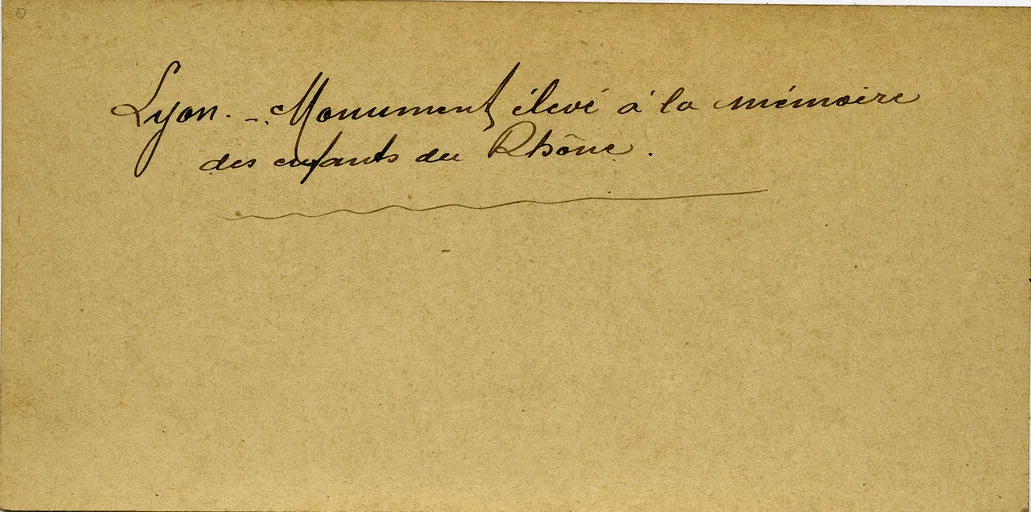 Lyon. - Monument élevé à la mémoire
des enfants du Rhône.